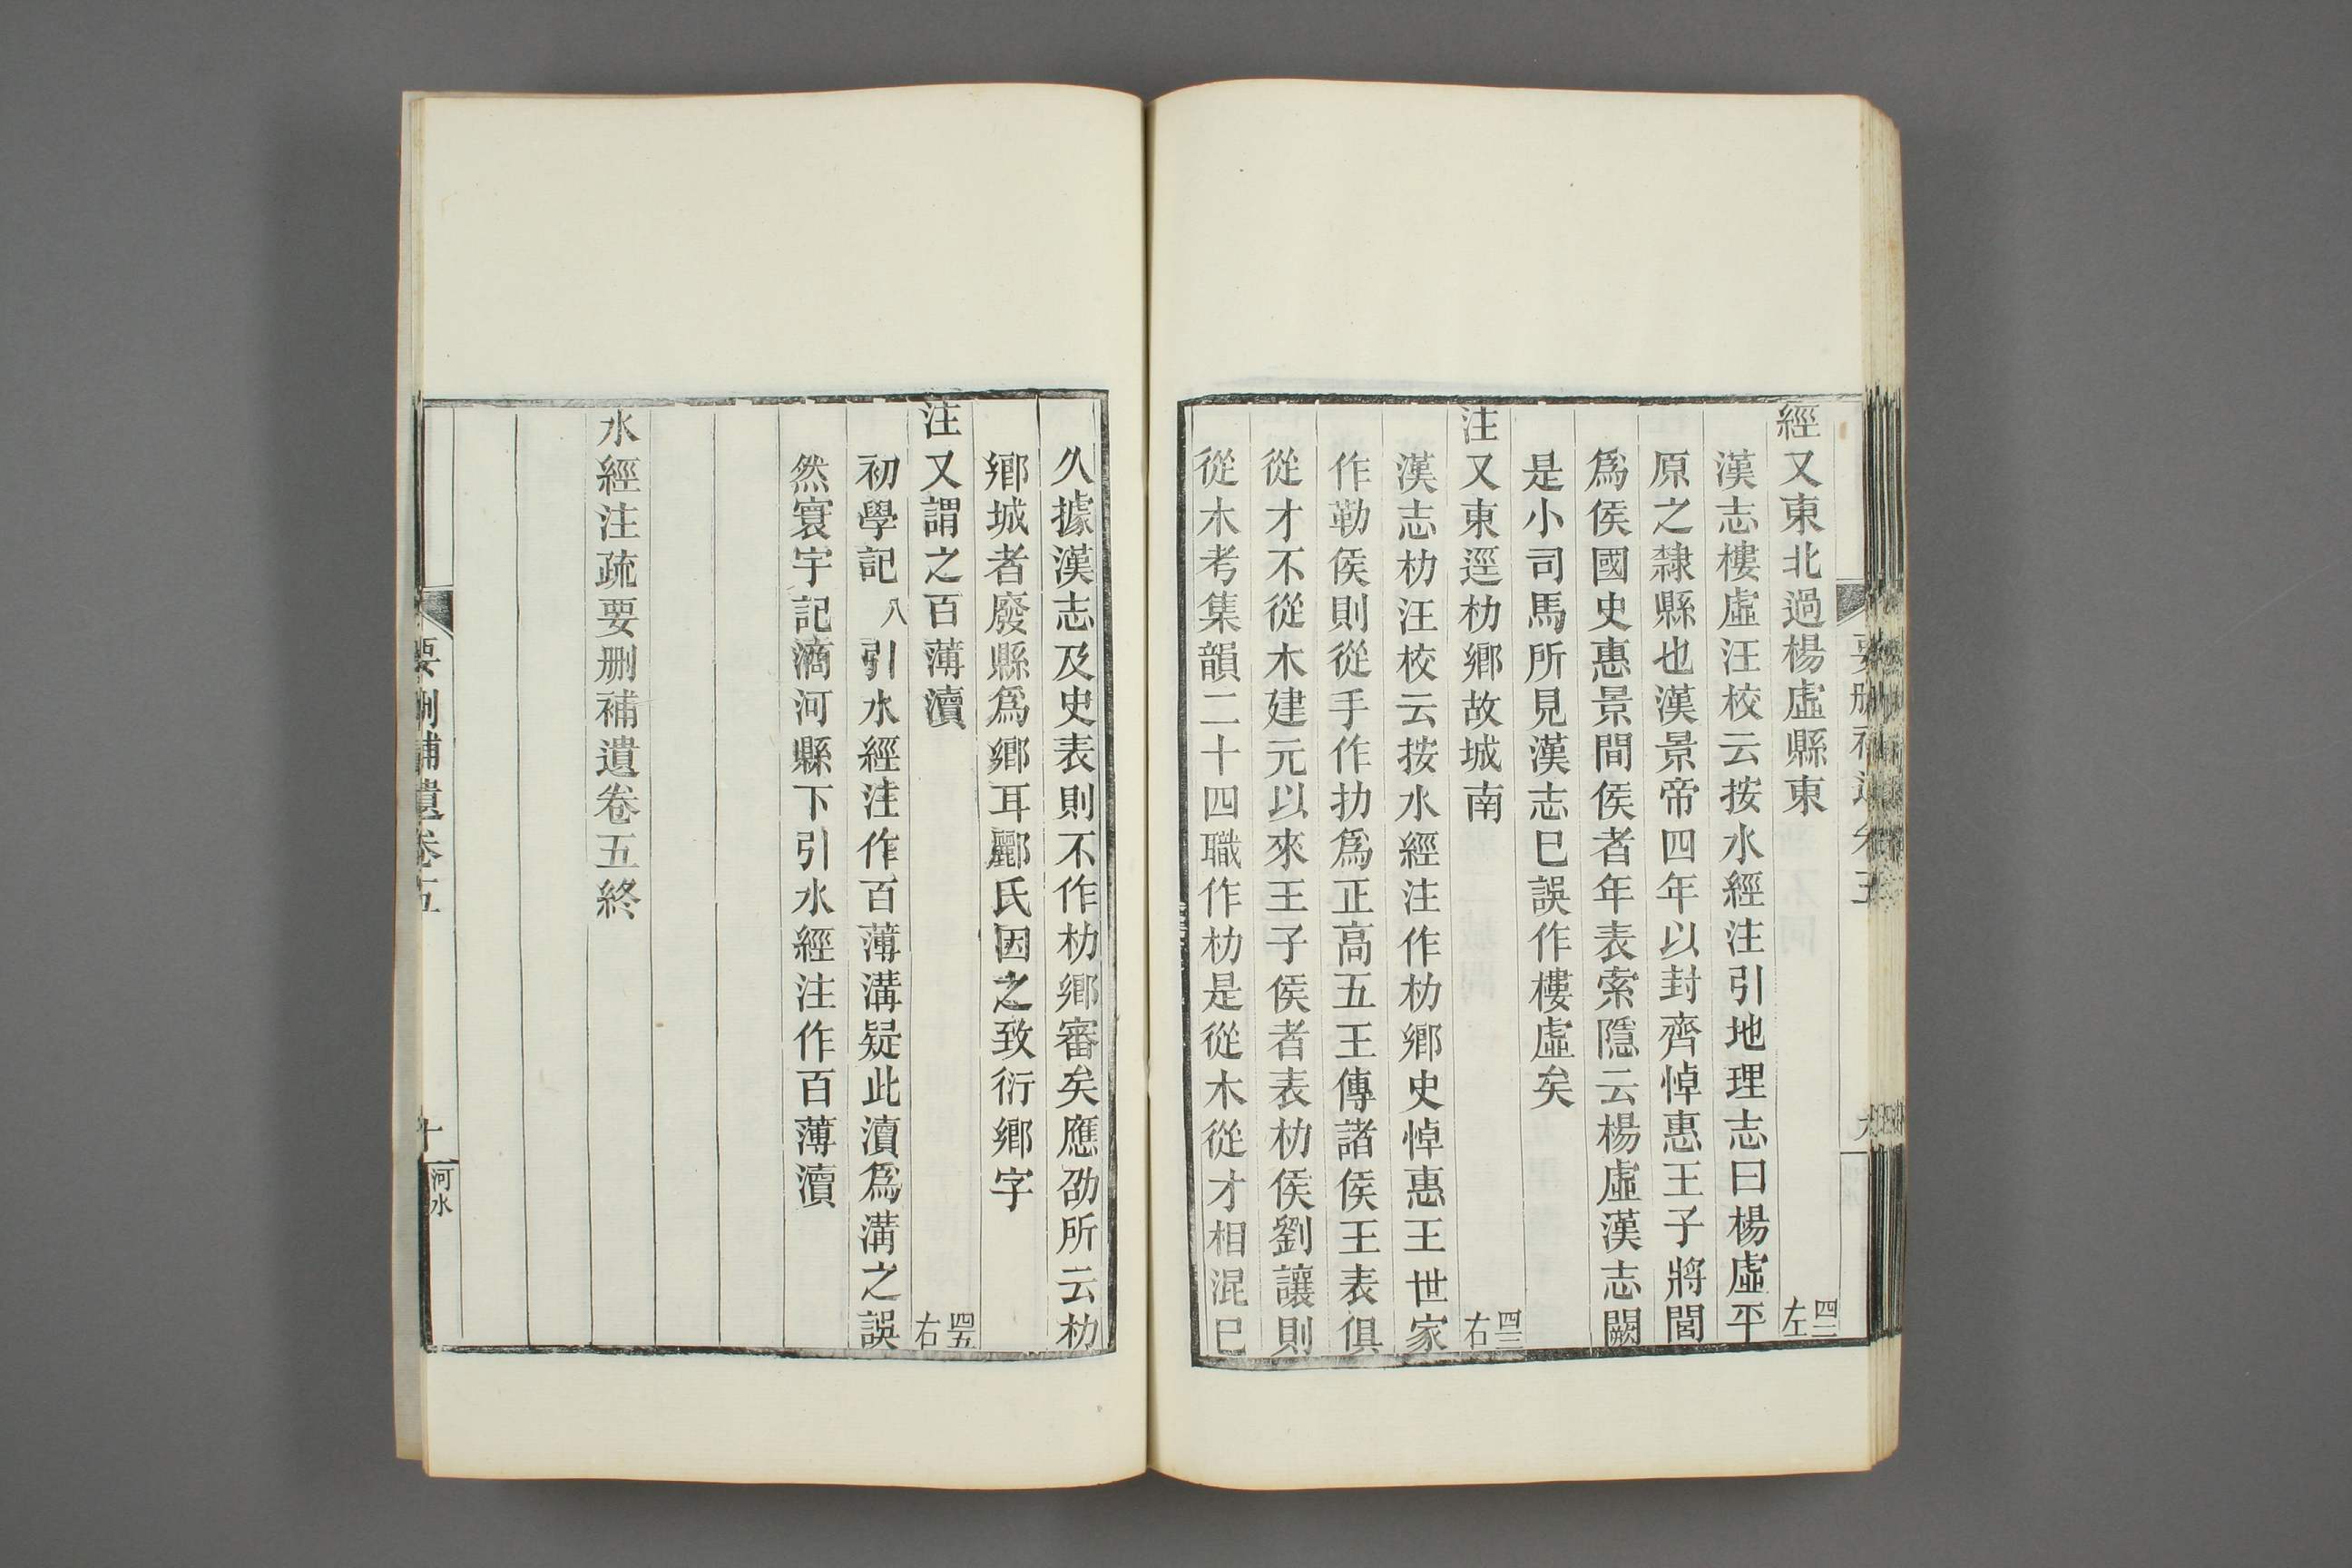 經又東北過楊虛縣東 四二左
漢志樓虛汪校云按水經注引地理志曰楊虛平
原之隸縣也漢景帝四年以封齊悼惠王子將閭
爲侯國史惠景間侯者年表索隱云楊虛漢志闕
是小司馬所見漢志巳誤作樓虛矣
注又東逕朸鄉故城南 四三右
漢志朸汪校云按水經注作朸鄉史悼惠王世家
作勒侯則從手作扐爲正高五王傳諸侯王表俱
從才不從木建元以來王子侯者表朸侯劉讓則
從木考集韻二十四職作朸是從木從才相混巳
久據漢志及史表則不作朸鄉審矣應劭所云朸
鄉城者廢縣爲鄉耳酈氏因之致衍鄉字
注又謂之百薄瀆 四五右
初學記八引水經注作百薄溝疑此瀆爲溝之誤
然寰宇記滴河縣下引水經注作百薄瀆
水經注疏要删補遺卷五終
要删補遺卷五 十 河水